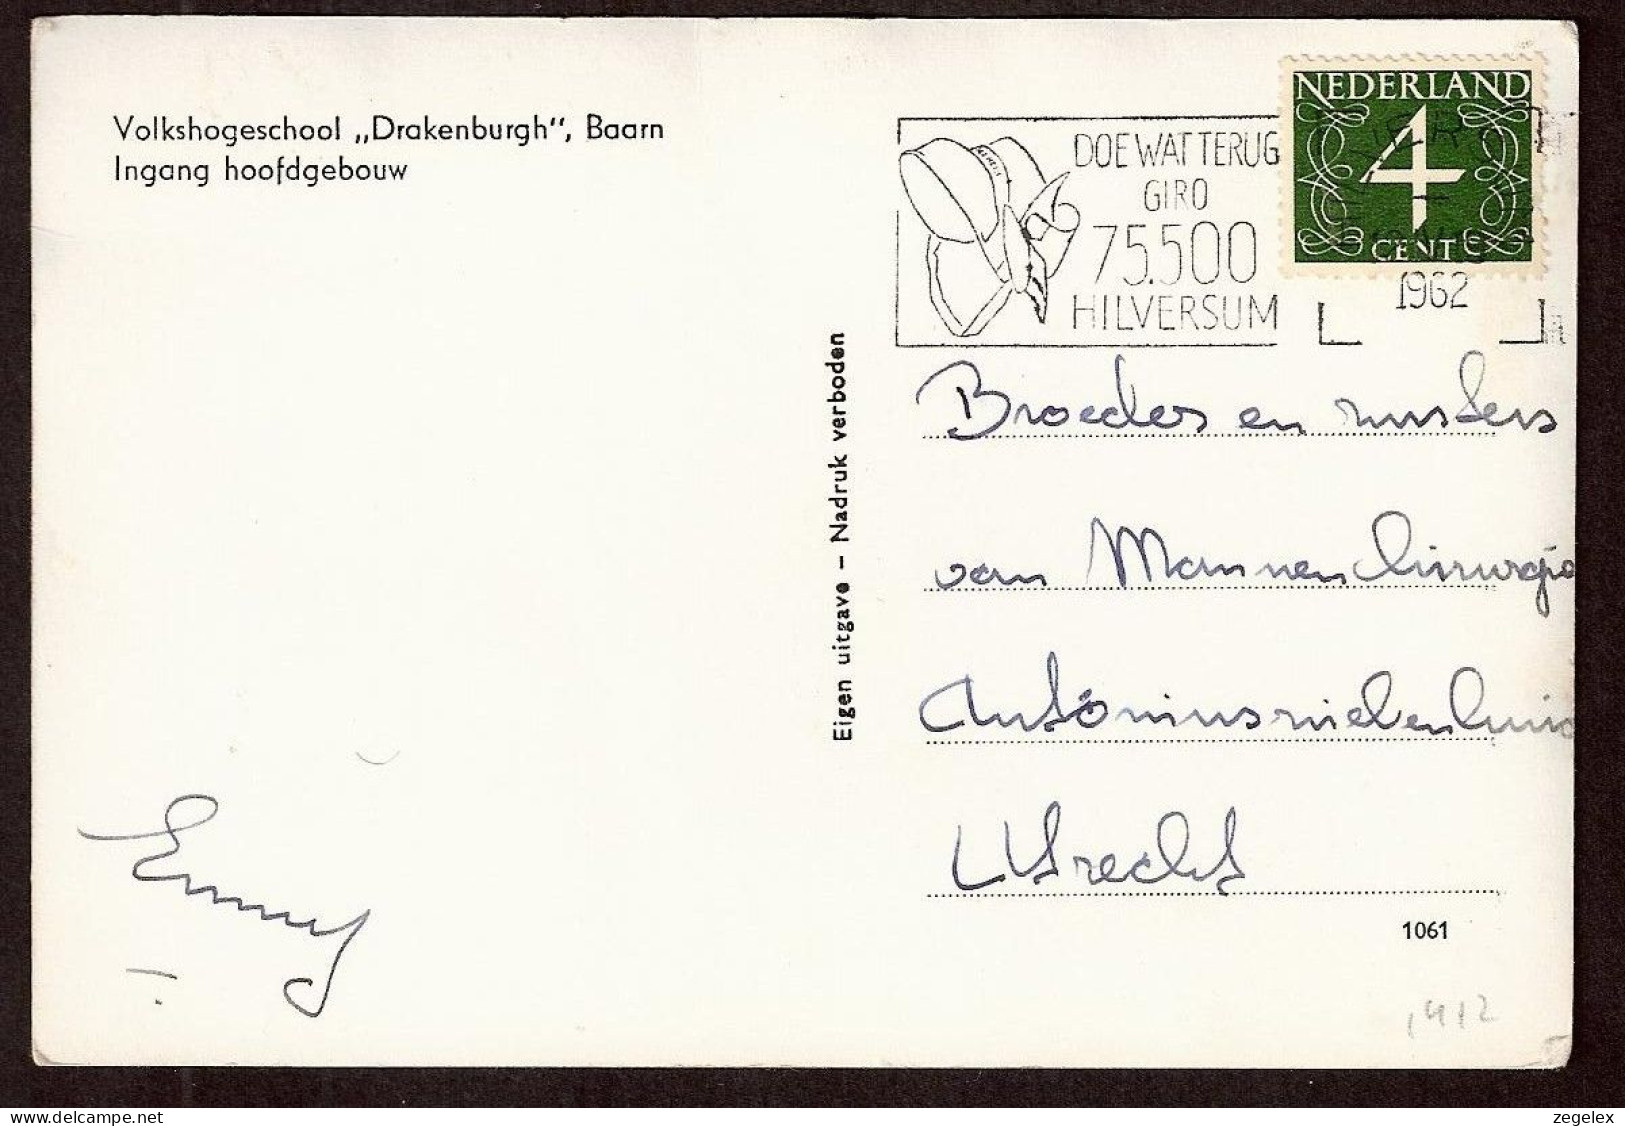 Volkshogeschool „Drakenburgh“, Baarn
Ingang hoofdgebouw
NEDERLAND
4
CENT
DOE WAT TERUG
GIRO
75.500
HILVERSUM
1962
Eigen uitgave – Nadruk verboden
Broeders en zusters
van Mannen Chirurgie
Antóniusziekenhuis
Utrecht
Emmy
1061
delcampe.net
zegelex